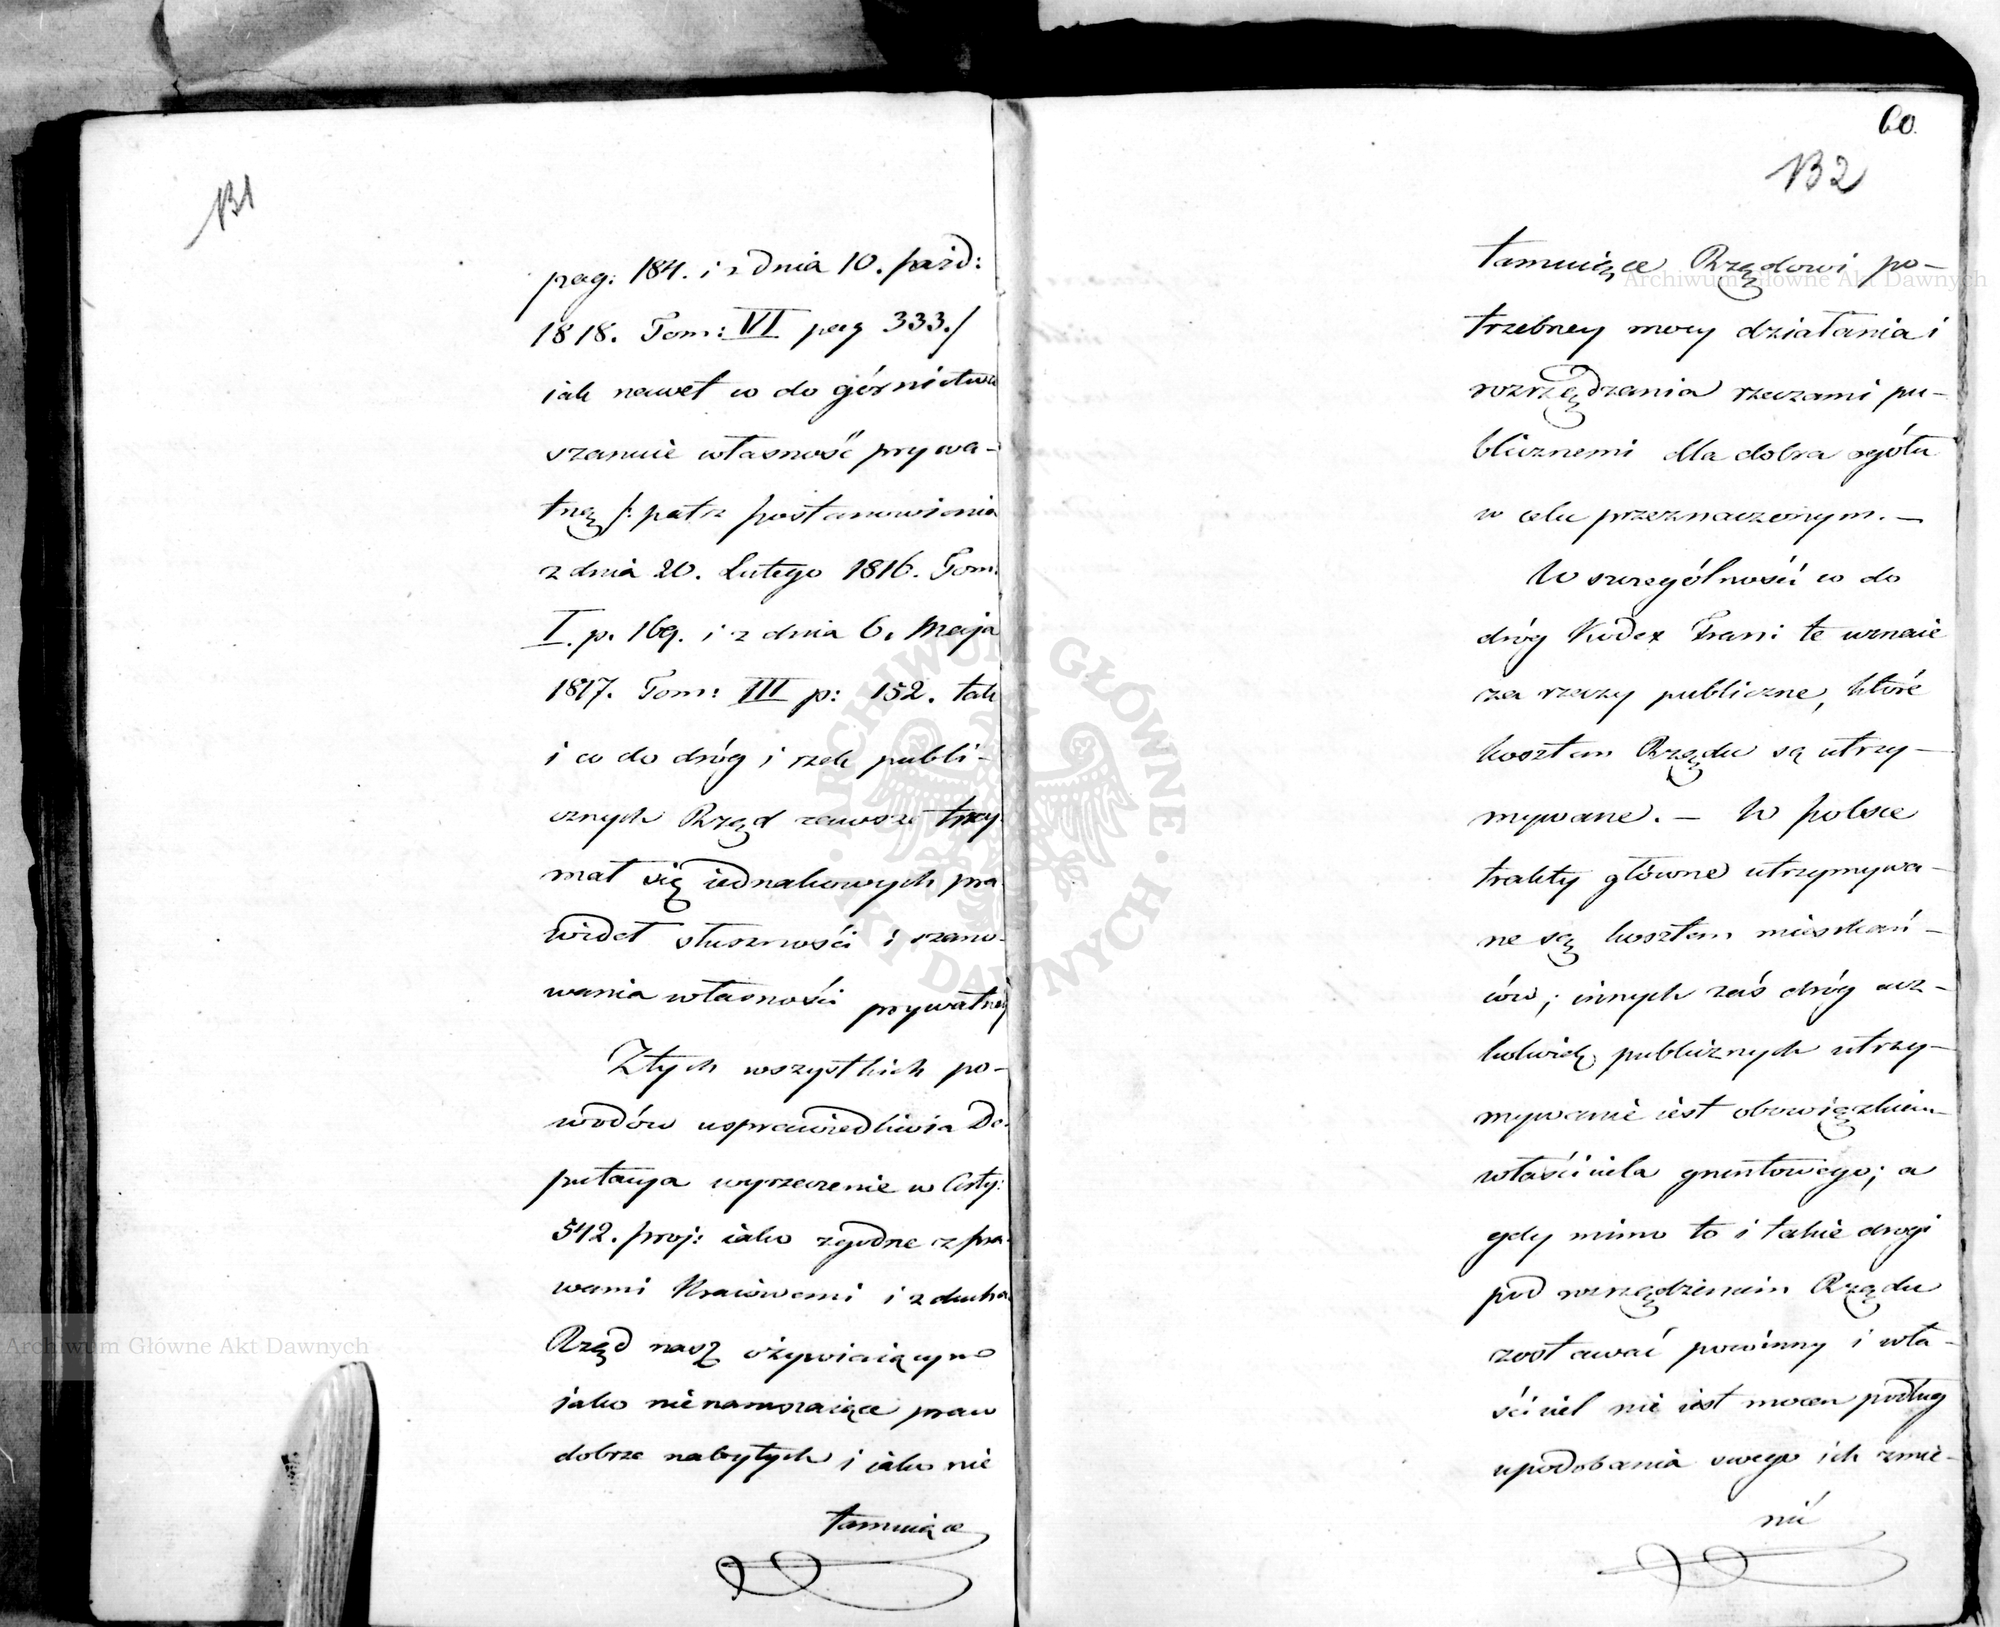 131
pag: 184. i z dnia 10. pazd:
1818. Tom: VI pag 333./
iak nawet co do górnictwa
szanuie własność prywa-
tną /: patrz postanowienia
z dnia 20. Lutego 1816. Tom:
I. p. 169. i z dnia 6. Maja
1817. Tom: III p: 152. tak
i co do dróg i rzek publi-
cznych Rząd zawsze trzy-
mał się iednakowych pra-
wideł słuszności i szano-
wania własności prywatnej
Z tych wszystkich po-
wodów usprawiedliwia De-
putacya wyrzeczenie w Arty:
542. proj: iako zgodne z pra-
wami Kraiowemi i z ducha
Rząd nasz ożywiaiącym
jako nienaruszaiące praw
dobrze nabytych i iako nie
tamuiące
60.
132
tamuiące Rządowi po-
trzebney mocy działania i
rozrządzania rzeczami pu-
blicznemi dla dobra ogółu
w celu przeznaczonym. —
W szczególności co do
dróg Kodex Frani te uznaie
za rzeczy publiczne, które
kosztem Rządu są utrzy-
mywane. — W Polsce
trakty główne utrzymywa-
ne są kosztem mieszkań-
ców; innych zaś dróg acz-
kolwiek publicznych utrzy-
mywanie iest obowiązkiem
właściciela gruntowego; a
gdy mimo to i takie drogi
pod rozrządzeniem Rządu
zostawać powinny i wła-
ściciel nie iest mocen podług
upodobania swego ich zmie-
nić
Archiwum Główne Akt Dawnych
Archiwum Główne Akt Dawnych
ARCHIWUM GŁÓWNE AKT DAWNYCH